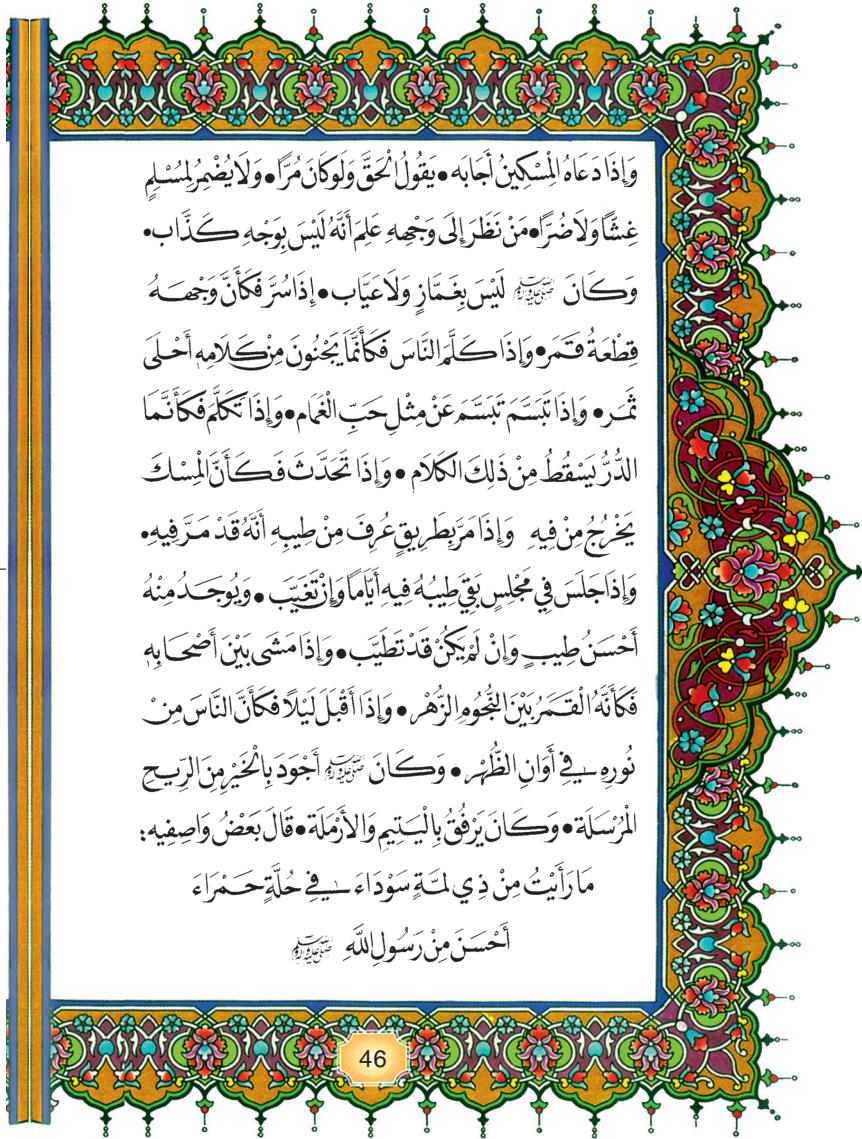 وَإِذَا دَعَاهُ الْمِسْكِينُ أَجَابَه • يَقُولُ الْحَقَّ وَلَوكَانَ مُرًّا • وَلَايُضْمِرُلِمُسْلِمٍ
غِشًّا وَلَاضُرًّا • مَنْ نَظَرَ إِلَى وَجْهِهِ عَلِمَ أَنَّهُ لَيْسَ بِوَجْهِ كَذَّاب •
وَكَانَ ﷺ لَيْسَ بِغَمَّازٍ وَلَاعَيَّاب • إِذَاسُرَّ فَكَأَنَّ وَجْهَهُ
قِطْعَةُ قَمَر • وَإِذَا كَلَّمَ النَّاسَ فَكَأَنَّمَا يَجْنُونَ مِنْ كَلَامِهِ أَحْلَى
ثَمَر • وَإِذَا تَبَسَّمَ تَبَسَّمَ عَنْ مِثْلِ حَبِّ الْغَمَام • وَإِذَا تَكَلَّمَ فَكَأَنَّمَا
الدُّرُّ يَسْقُطُ مِنْ ذَلِكَ الكَلَام • وَإِذَا تَحَدَّثَ فَكَأَنَّ الْمِسْكَ
يَخْرُجُ مِنْ فِيهِ وَإِذَا مَرَّ بِطَرِيقٍ عُرِفَ مِنْ طِيبِهِ أَنَّهُ قَدْ مَرَّ فِيهِ •
وَإِذَا جَلَسَ فِي مَجْلِسٍ بَقِيَ طِيبُهُ فِيهِ أَيَّامًا وَإِنْ تَغَيَّب • وَيُوجَدُ مِنْهُ
أَحْسَنُ طِيبٍ وَإِنْ لَمْ يَكُنْ قَدْ تَطَيَّب • وَإِذَا مَشَى بَيْنَ أَصْحَابِهِ
فَكَأَنَّهُ الْقَمَرُ بَيْنَ النُّجُومِ الزُّهْر • وَإِذَا أَقْبَلَ لَيْلًا فَكَأَنَّ النَّاسَ مِنْ
نُورِهِ فِي أَوَانِ الظُّهْر • وَكَانَ ﷺ أَجْوَدَ بِالْخَيْرِ مِنَ الرِّيحِ
الْمُرْسَلَة • وَكَانَ يَرْفُقُ بِالْيَتِيمِ وَالأَرْمَلَة • قَالَ بَعْضُ وَاصِفِيه:
مَا رَأَيْتُ مِنْ ذِي لِمَّةٍ سَوْدَاءَ فِي حُلَّةٍ حَمْرَاءَ
أَحْسَنَ مِنْ رَسُولِ اللَّهِ ﷺ
46